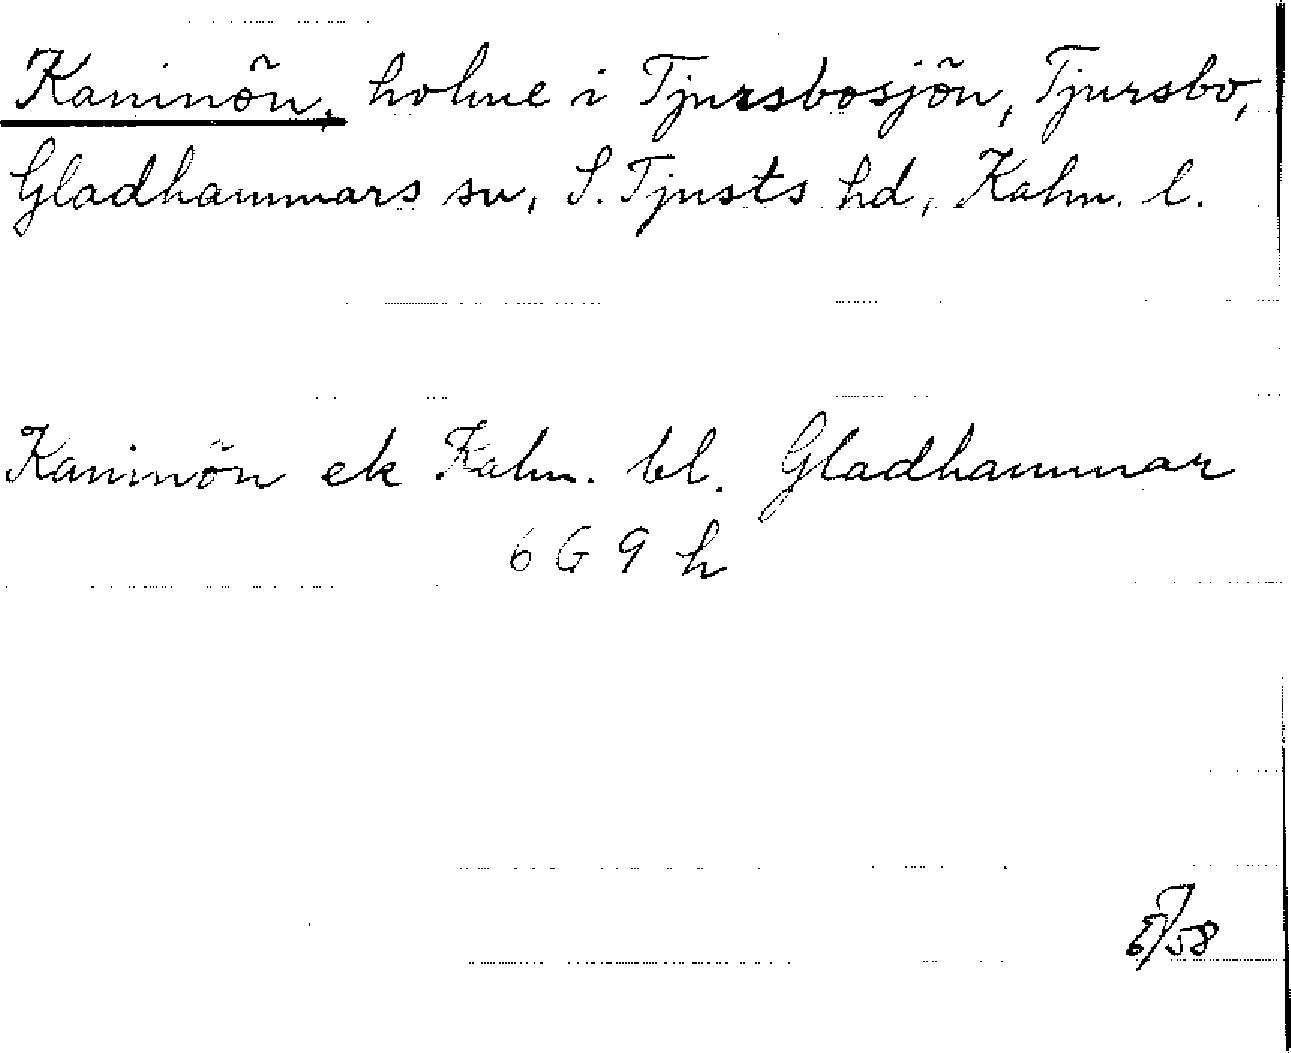 Kaninön, holme i Tjursbosjön, Tjursbo,
Gladhammars sn, S. Tjusts hd, Kalm. l.
Kaninön ek Kalm. bl. Gladhammar
6 G 9 h